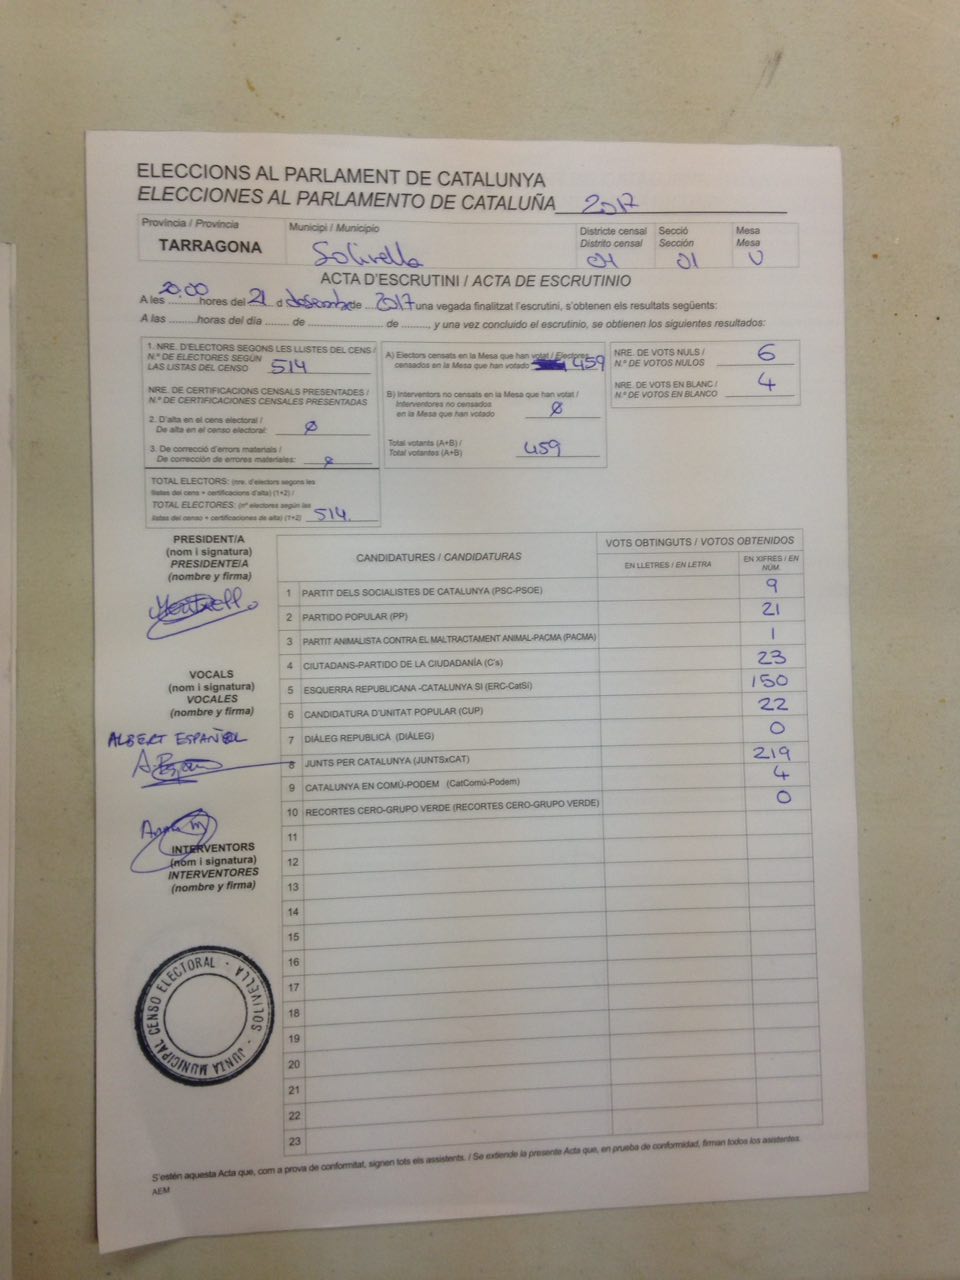 ELECCIONS AL PARLAMENT DE CATALUNYA
ELECCIONES AL PARLAMENTO DE CATALUÑA 2017
Província / Provincia
TARRAGONA
Municipi / Municipio
Solivella
Districte censal
Distrito censal
01
Secció
Sección
01
Mesa
Mesa
U
ACTA D'ESCRUTINI / ACTA DE ESCRUTINIO
A les 20:00 hores del 21 d desembre de 2017 una vegada finalitzat l'escrutini, s'obtenen els resultats següents:
A las .........horas del día ........ de .......................... de ........, y una vez concluido el escrutinio, se obtienen los siguientes resultados:
1. NRE. D'ELECTORS SEGONS LES LLISTES DEL CENS /
N.º DE ELECTORES SEGÚN
LAS LISTAS DEL CENSO 514
NRE. DE CERTIFICACIONS CENSALS PRESENTADES /
N.º DE CERTIFICACIONES CENSALES PRESENTADAS
2. D'alta en el cens electoral /
De alta en el censo electoral: 0
3. De correcció d'errors materials /
De corrección de errores materiales: 0
TOTAL ELECTORS: (nre. d'electors segons les
llistes del cens + certificacions d'alta) (1+2) /
TOTAL ELECTORES: (nº electores según las
listas del censo + certificaciones de alta) (1+2) 514.
A) Electors censats en la Mesa que han votat / Electores
censados en la Mesa que han votado 459
B) Interventors no censats en la Mesa que han votat /
Interventores no censados
en la Mesa que han votado 0
Total votants (A+B) /
Total votantes (A+B) 459
NRE. DE VOTS NULS /
N.º DE VOTOS NULOS 6
NRE. DE VOTS EN BLANC /
N.º DE VOTOS EN BLANCO 4
PRESIDENT/A
(nom i signatura)
PRESIDENTE/A
(nombre y firma)
VOCALS
(nom i signatura)
VOCALES
(nombre y firma)
ALBERT ESPAÑOL
INTERVENTORS
(nom i signatura)
INTERVENTORES
(nombre y firma)
JUNTA MUNICIPAL CENSO ELECTORAL - SOLIVELLA -
CANDIDATURES / CANDIDATURAS
VOTS OBTINGUTS / VOTOS OBTENIDOS
EN LLETRES / EN LETRA
EN XIFRES / EN NÚM.
1 PARTIT DELS SOCIALISTES DE CATALUNYA (PSC-PSOE) 9
2 PARTIDO POPULAR (PP) 21
3 PARTIT ANIMALISTA CONTRA EL MALTRACTAMENT ANIMAL-PACMA (PACMA) 1
4 CIUTADANS-PARTIDO DE LA CIUDADANÍA (C's) 23
5 ESQUERRA REPUBLICANA -CATALUNYA SI (ERC-CatSí) 150
6 CANDIDATURA D'UNITAT POPULAR (CUP) 22
7 DIÀLEG REPUBLICÀ (DIÀLEG) 0
8 JUNTS PER CATALUNYA (JUNTSxCAT) 219
9 CATALUNYA EN COMÚ-PODEM (CatComú-Podem) 4
10 RECORTES CERO-GRUPO VERDE (RECORTES CERO-GRUPO VERDE) 0
11
12
13
14
15
16
17
18
19
20
21
22
23
S'estén aquesta Acta que, com a prova de conformitat, signen tots els assistents. / Se extiende la presente Acta que, en prueba de conformidad, firman todos los asistentes.
AEM